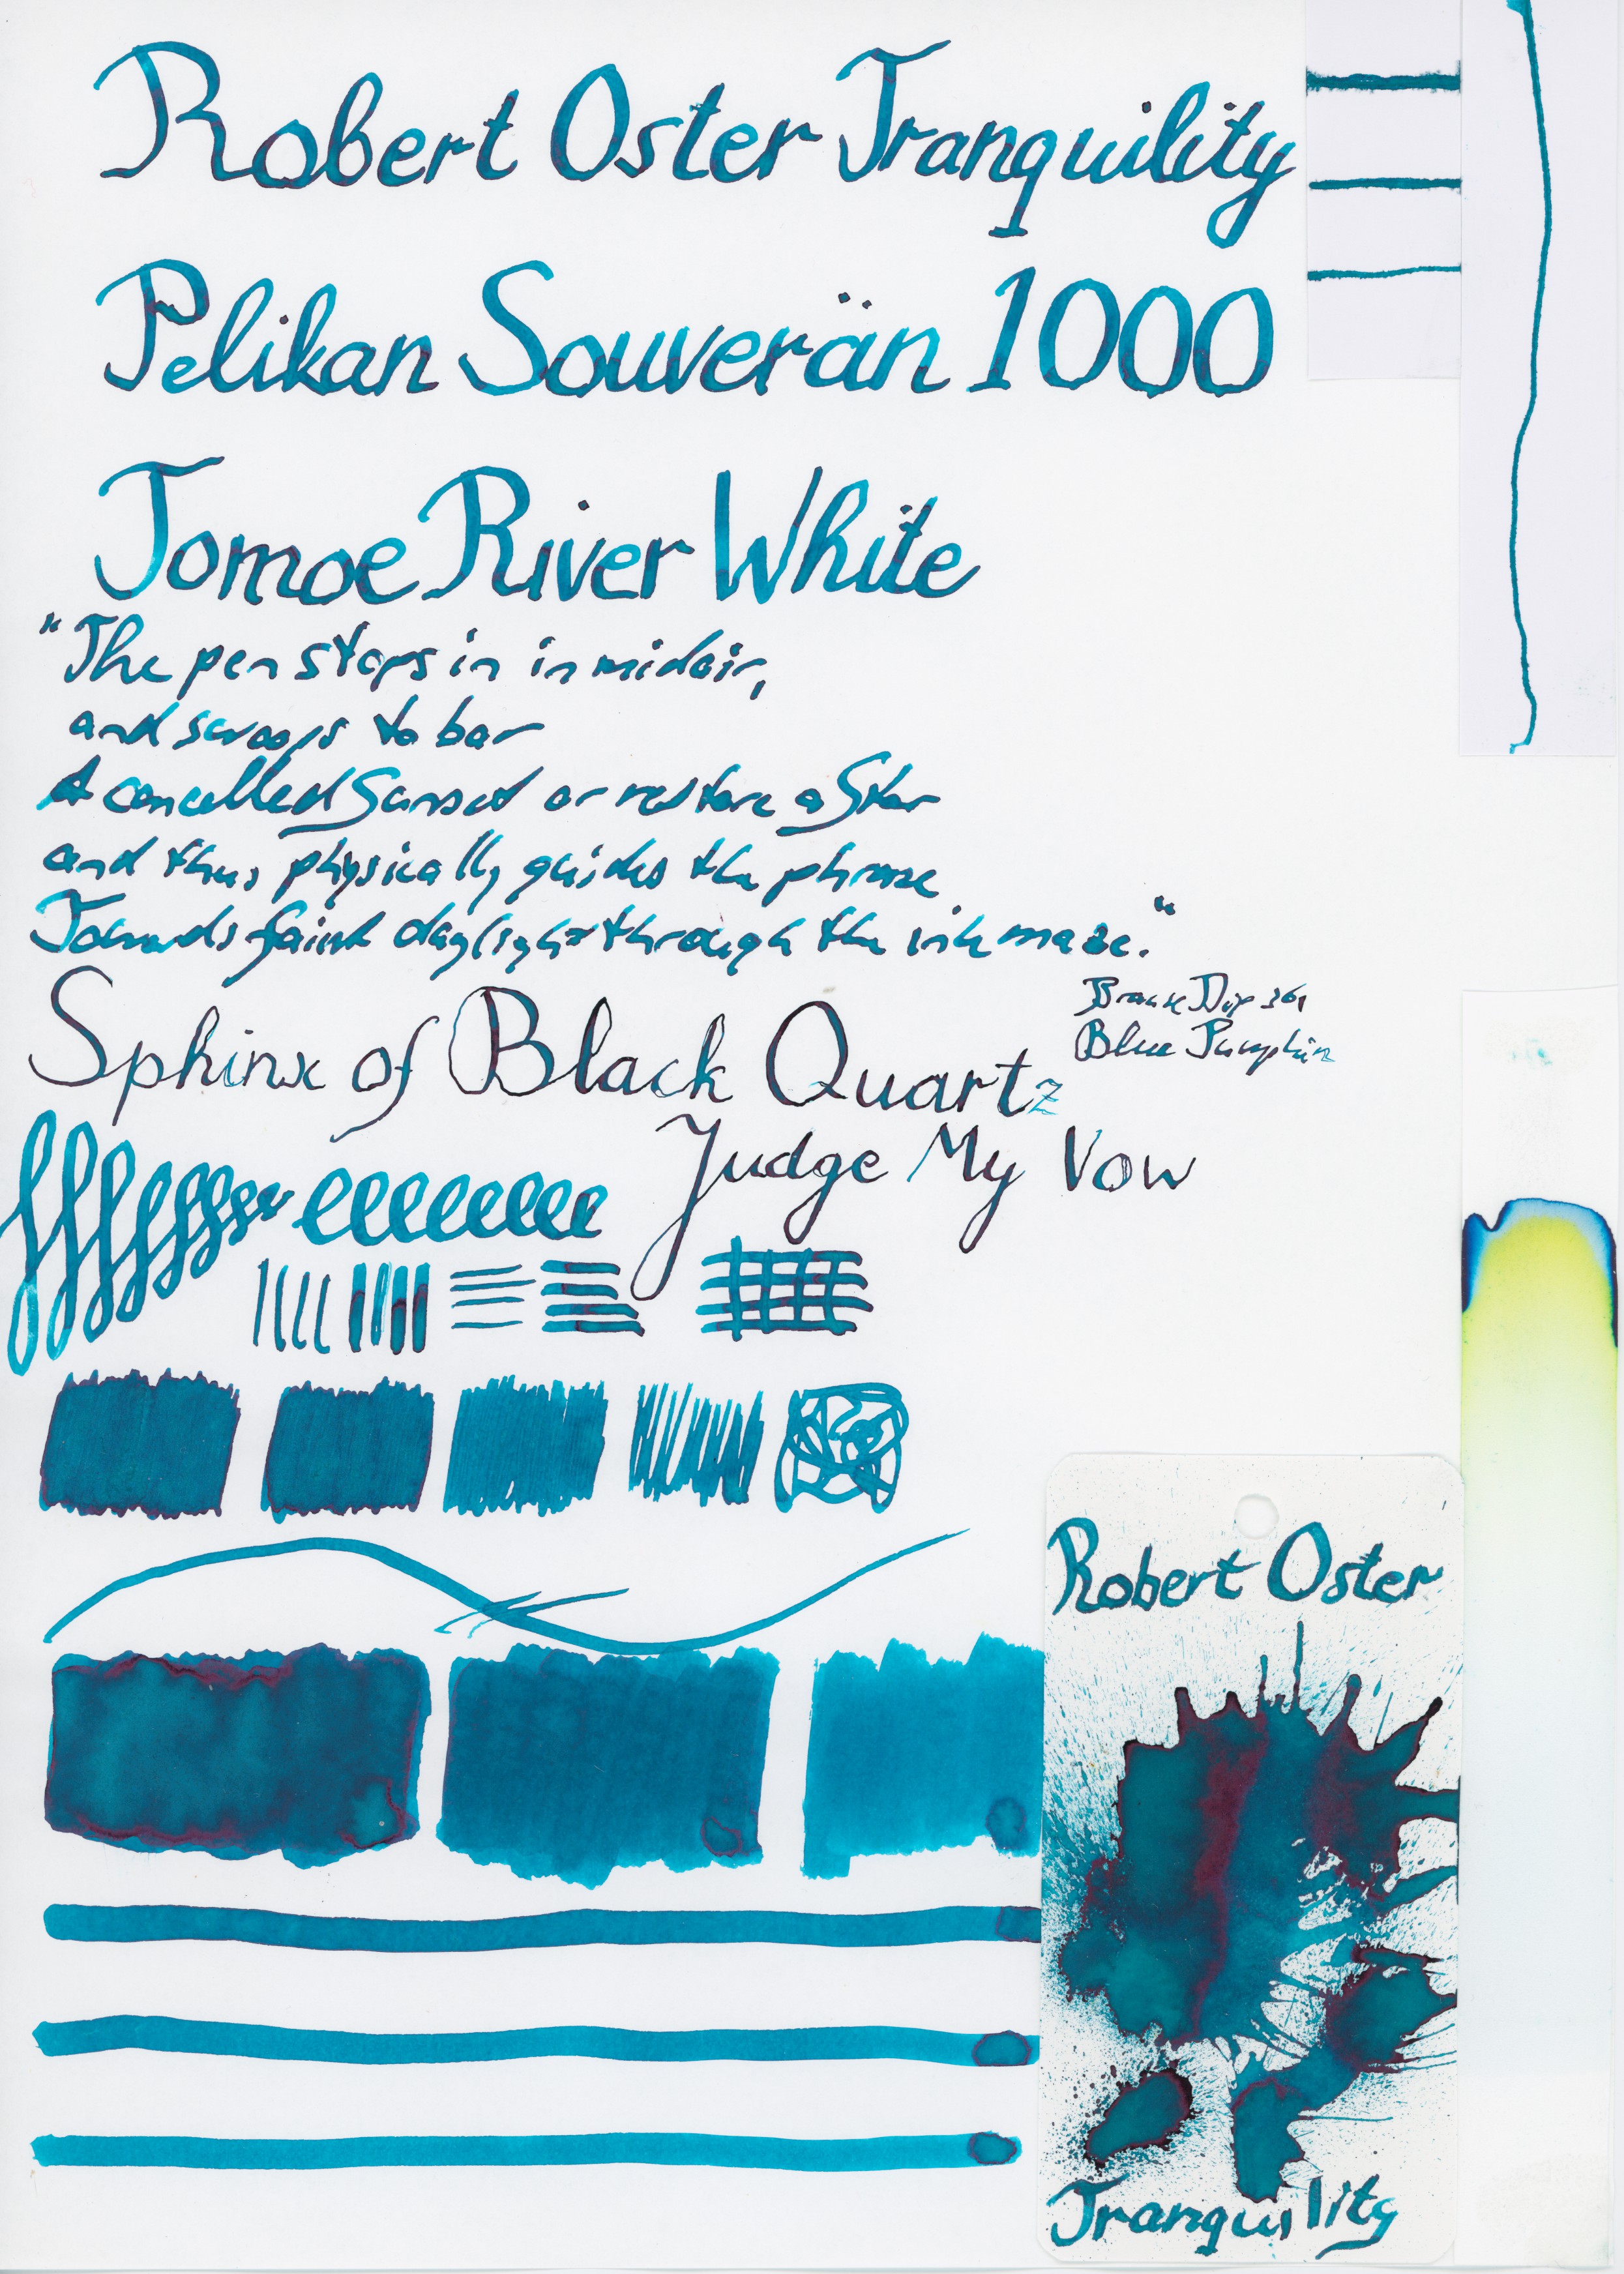 Robert Oster Tranquility
Pelikan Souverän 1000
Tomoe River White
"The pen stops in in midair,
and swoops to bar
A cancelled Sunset or restore a Star
and thus physically guides the phrase
Towards faint daylight through the ink maze."
Brause Dip 361
Blue Pumpkin
Sphinx of Black Quartz
Judge My Vow
Robert Oster
Tranquility